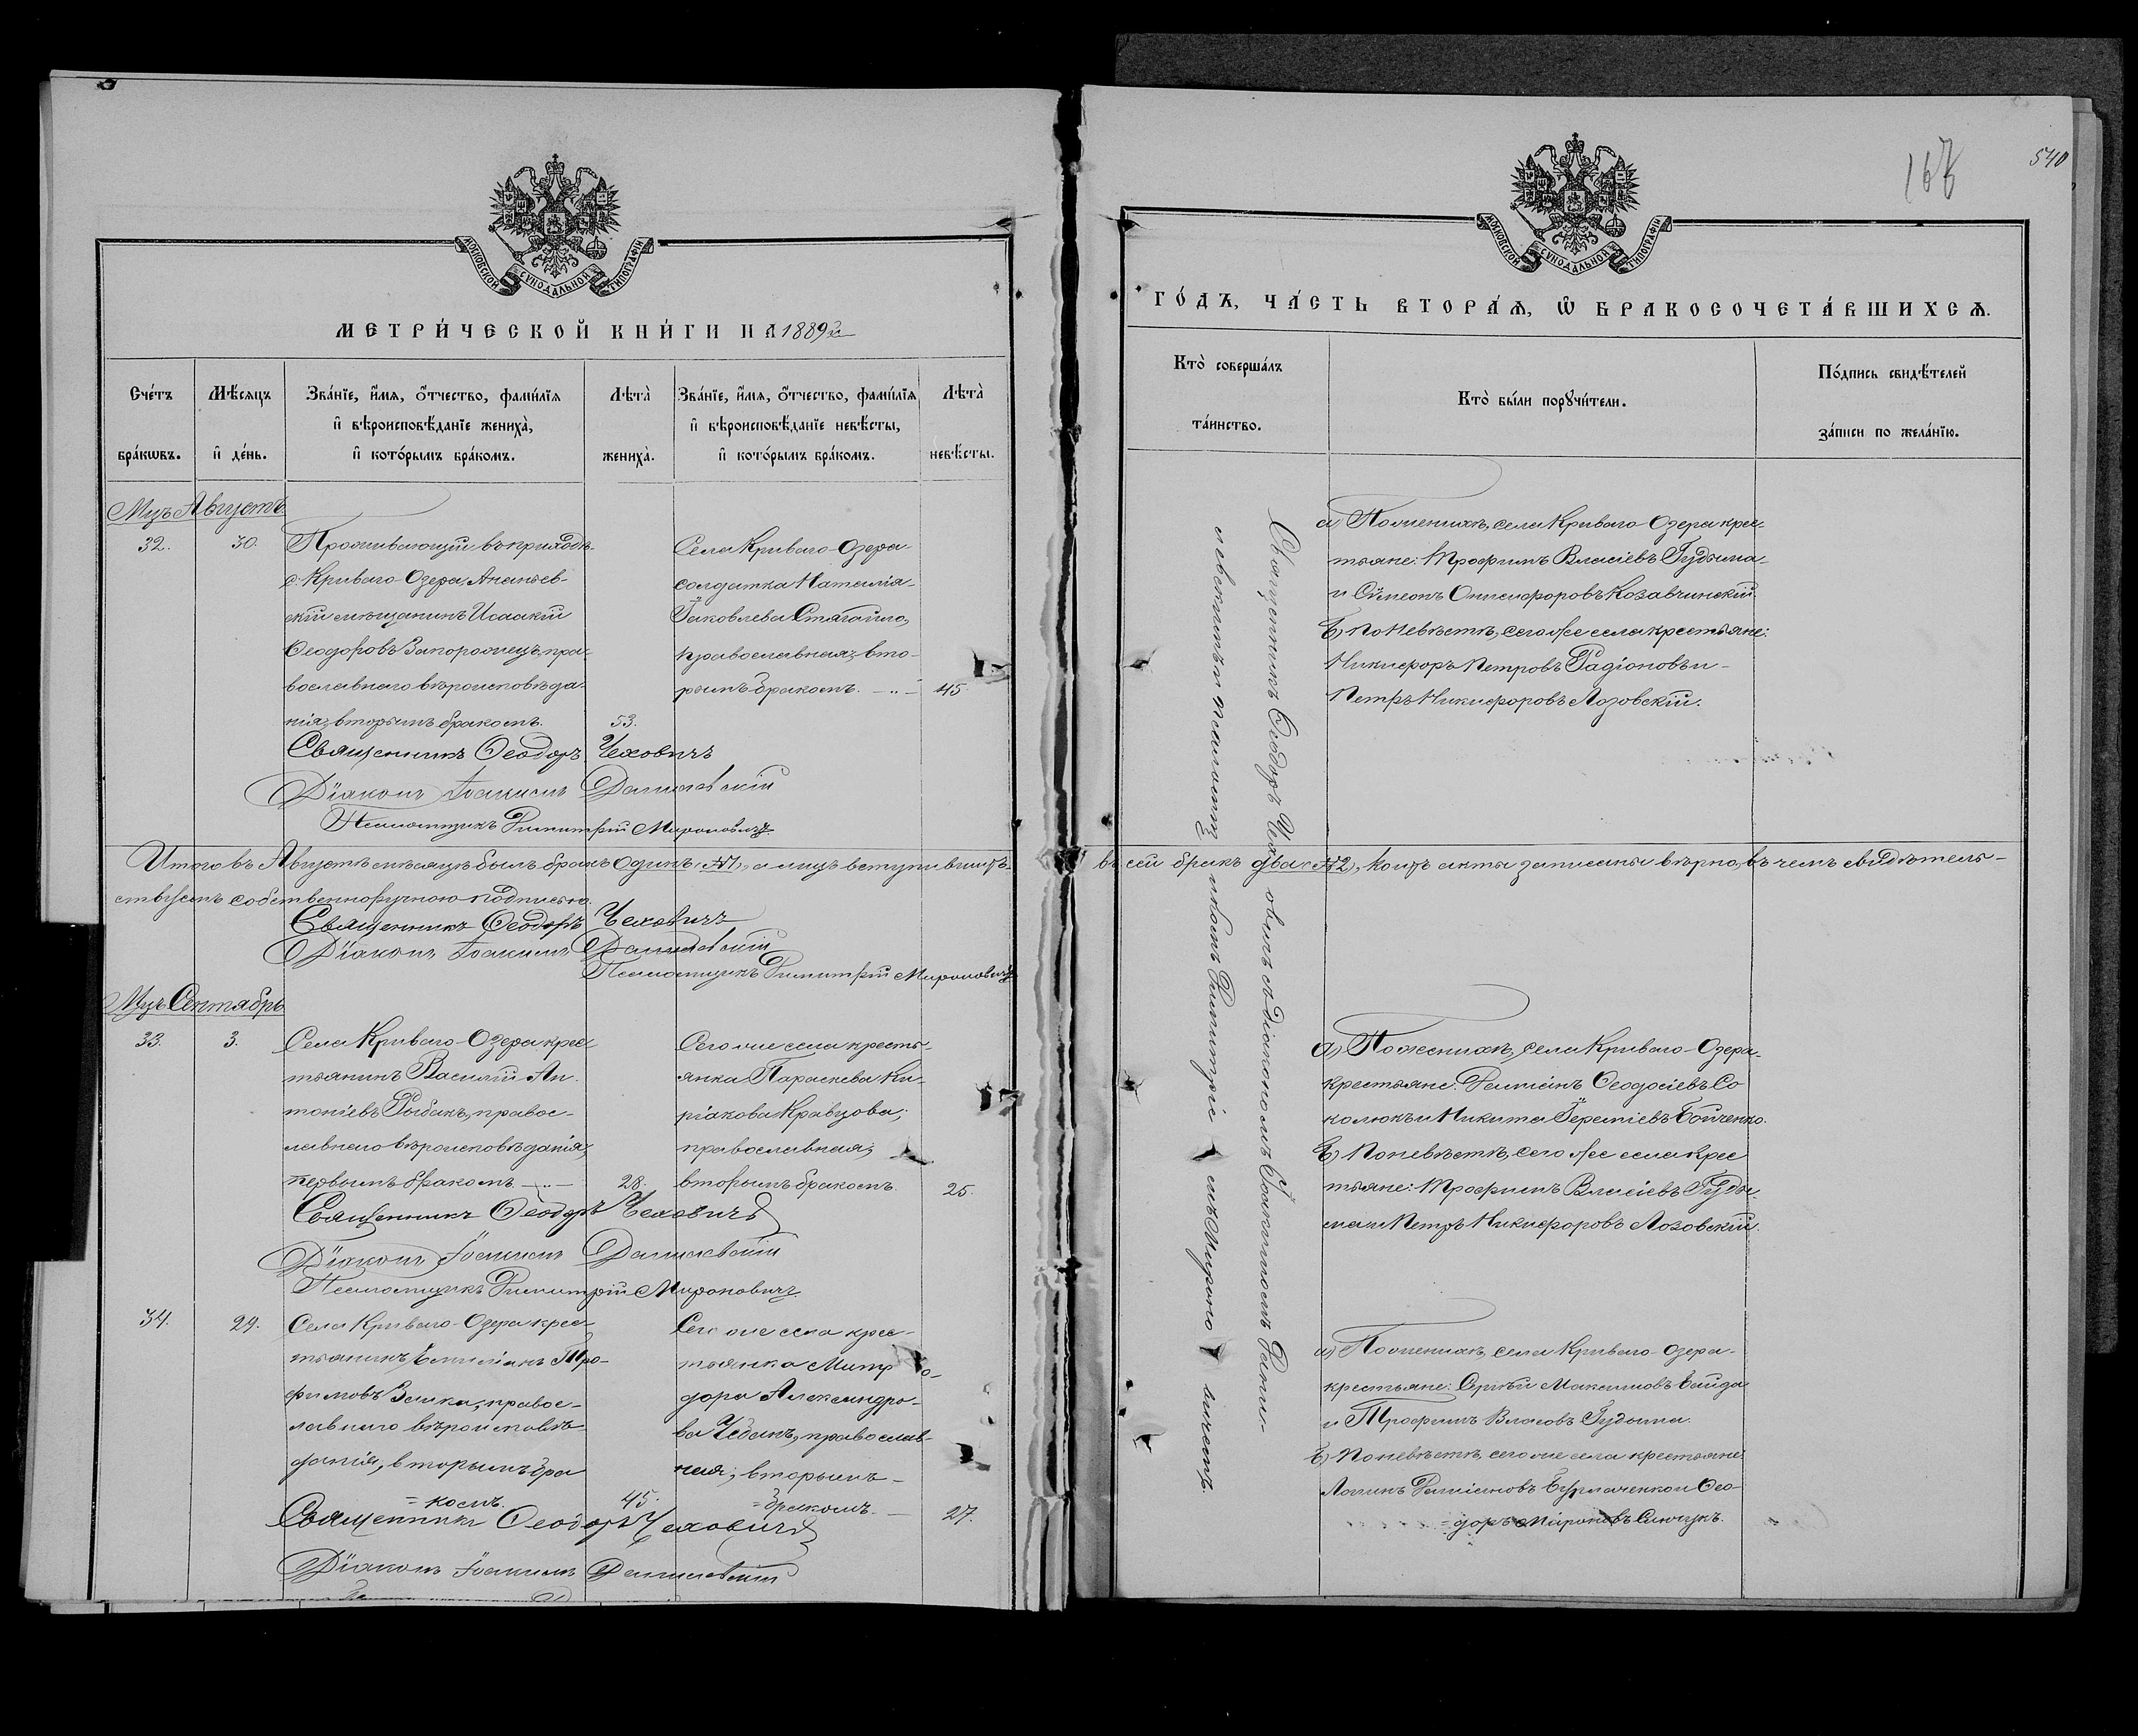 МОСКОВСКОЙ СУНОДАЛЬНОЙ ТИПОГРАФІИ
МЕТРИ́ЧЕСКОЙ КНИ́ГИ НА 1889й
Сче́тъ бра́кωвъ.
Мѣ́сяцъ и҆ де́нь.
Зва́нїе, и҆́мя, ѻ҆́тчество, фами́лїя
и҆ вѣроисповѣ́данїе жениха̀,
и҆ кото́рымъ бра́комъ.
Лѣта̀ жениха̀.
Зва́нїе, и҆́мя, ѻ҆́тчество, фами́лїя
и҆ вѣроисповѣ́данїе невѣ́сты,
и҆ кото́рымъ бра́комъ.
Лѣта̀ невѣ́сты.
Мцъ Августъ
32.
30.
Проживающій въ приходѣ
с. Криваго-Озера, Ананьев-
скій мѣщанинъ Исаакій
Ѳеодоровъ Запорожецъ, пра-
вославнаго вѣроисповѣда-
нія, вторымъ бракомъ.
53.
Села Криваго-Озера
солдатка Наталія
Іаковлева Стягайло,
православная, вто-
рымъ бракомъ. - „ -
45.
Священникъ Ѳеодоръ Чеховичъ
Діаконъ Іоакимъ Данилевскій
Псаломщикъ Димитрій Мироновичъ
Итого въ Августѣ мѣсяцѣ былъ бракъ одинъ (№1), а лицъ вступившихъ
ствуемъ собственноручною подписью.
Священникъ Ѳеодоръ Чеховичъ
Діаконъ Іоакимъ Данилевскій
Псаломщикъ Димитрій Мироновичъ
Мцъ Сентябрь
33.
3.
Села Криваго-Озера крес-
тьянинъ Василій Ан-
тоніевъ Рыбакъ, правос-
лавнаго вѣроисповѣданія,
первымъ бракомъ. - „ -
28.
Сего же села кресть-
янка Параскева Ки-
ріакова Кравцова,
православная,
вторымъ бракомъ.
25.
Священникъ Ѳеодоръ Чеховичъ
Діаконъ Іоакимъ Данилевскій
Псаломщикъ Димитрій Мироновичъ
34.
29.
Села Криваго-Озера крес-
тьянинъ Емиліанъ Тро-
фимовъ Заика, правос-
лавнаго вѣроисповѣ-
данія, вторымъ бра
= комъ.
45.
Сего же села крес-
тьянка Митр о-
дора Александро-
ва Чебанъ, православ-
ная, вторымъ
= бракомъ. -
27.
Священникъ Ѳеодоръ Чеховичъ
Діаконъ Іоакимъ Данилевскій
167
540
МОСКОВСКОЙ СУНОДАЛЬНОЙ ТИПОГРАФІИ
ГО́ДЪ, ЧА́СТЬ ВТОРА́Я, Ѽ БРАКОСОЧЕТА́ВШИХСЯ.
Кто̀ соверша́лъ
та́инство.
Кто̀ бы́ли порꙋчи́тели.
По́дпись свидѣ́телей
за́писи по жела́нїю.
Священникъ Ѳеодоръ Чеховичъ съ Діакономъ Іоакимомъ Дани-
левскимъ и псаломщикомъ Димитріемъ Мироновичемъ
а) По женихѣ, села Криваго-Озера крес-
тьяне: Трофимъ Власіевъ Гудыма
и Сѵмеонъ Онисифоровъ Козавчинскій.
б) По невѣстѣ, сего же села крестьяне:
Никифоръ Петровъ Радіоновъ и
Петръ Никифоровъ Лозовскій.
въ сей бракъ два (№2), коихъ акты записаны вѣрно, въ чемъ свидѣтель-
а) По женихѣ, села Криваго-Озера
крестьяне: Даміанъ Ѳеодосіевъ Со
колюкъ и Никита Іереміевъ Бойченко.
б) По невѣстѣ, сего же села крес
тьяне: Трофимъ Власіевъ Гуды-
ма и Петръ Никифоровъ Лозовскій.
а) По женихѣ, села Криваго-Озера
крестьяне: Сергѣй Максимовъ Гайда
и Трофимъ Власовъ Гудыма.
б) По невѣстѣ, сего же села крестьяне:
Логинъ Даміановъ Бурлаченко и Ѳео-
= доръ Мироновъ Синчукъ.